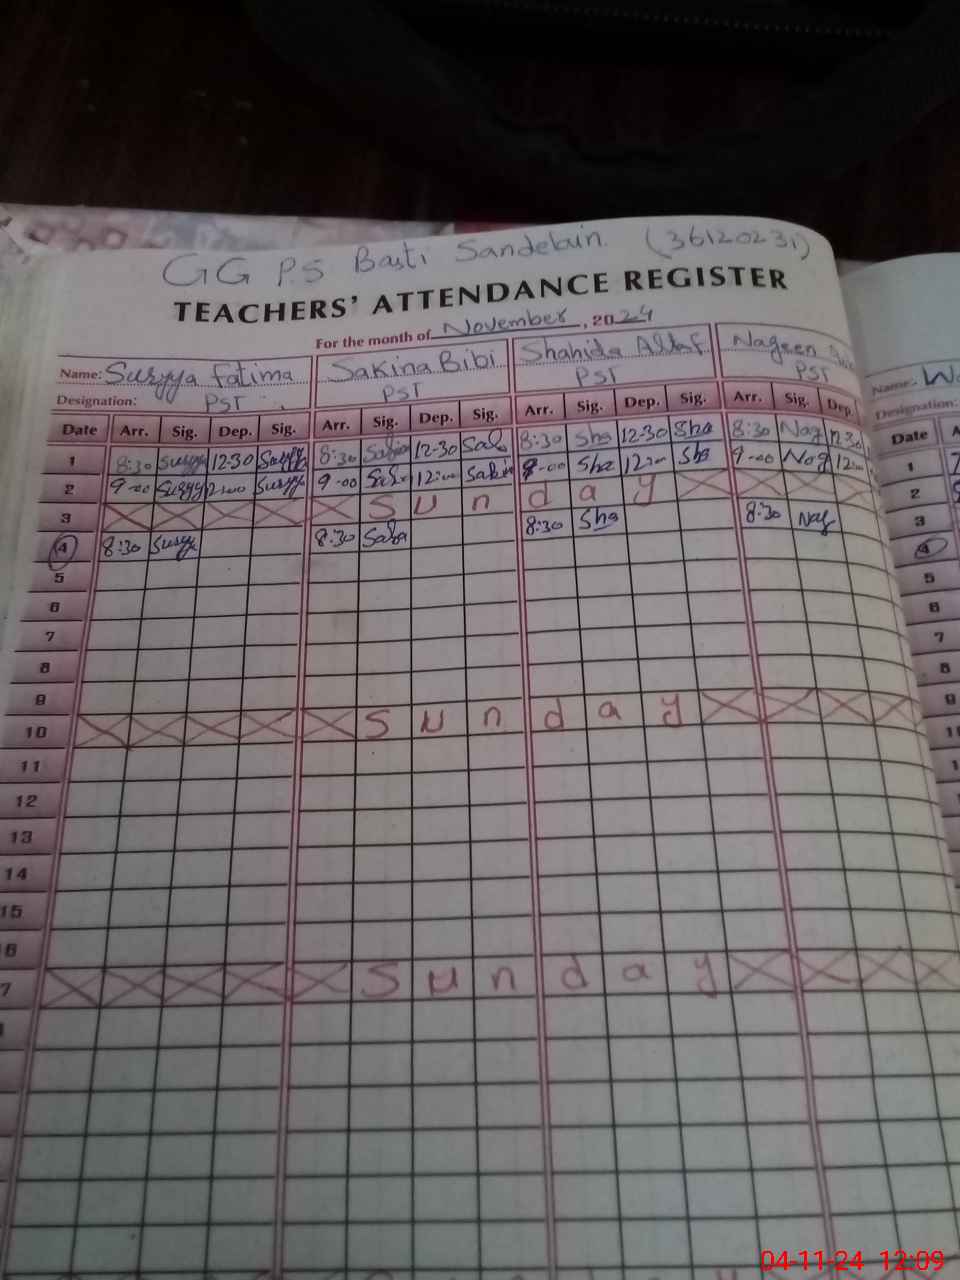 GG P.S Basti Sandelain (36120231)
TEACHERS' ATTENDANCE REGISTER
For the month of November, 2024
Name: Suryya Fatima Sakina Bibi Shahida Altaf Nageen
Designation: PST PST PST PST
Date Arr. Sig. Dep. Sig. Arr. Sig. Dep. Sig. Arr. Sig. Dep. Sig. Arr. Sig. Dep.
1 8:30 Suryya 12-30 Suryya 8:30 12-30 8:30 Sha 12-30 Sha 8:30 Nag 12-30
2 9-00 Suryya 12:00 Suryya 9-00 12:00 Sha 12:00 Sha 9-00 Nag 12:00
3 Sunday
4 8:30 Suryya 8:30 8:30 Sha 8:30 Nag
5
6
7
8
9
10 Sunday
11
12
13
14
15
6
7 Sunday
Name:
Designation:
Date
1
2
3
4
5
6
7
8
9
04-11-24 12:09